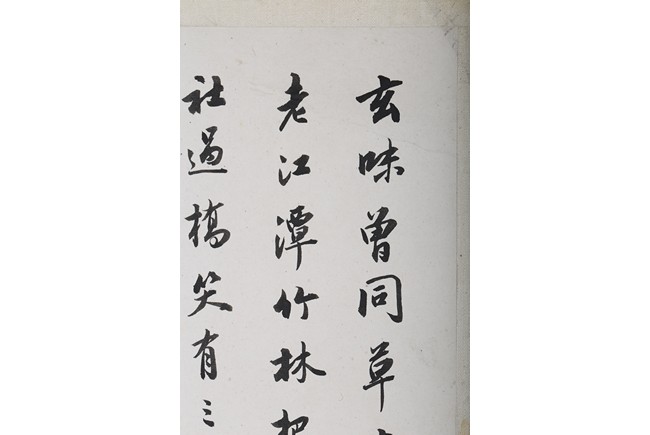 玄味曾同草
老江潭竹林把
社過橋笑有三